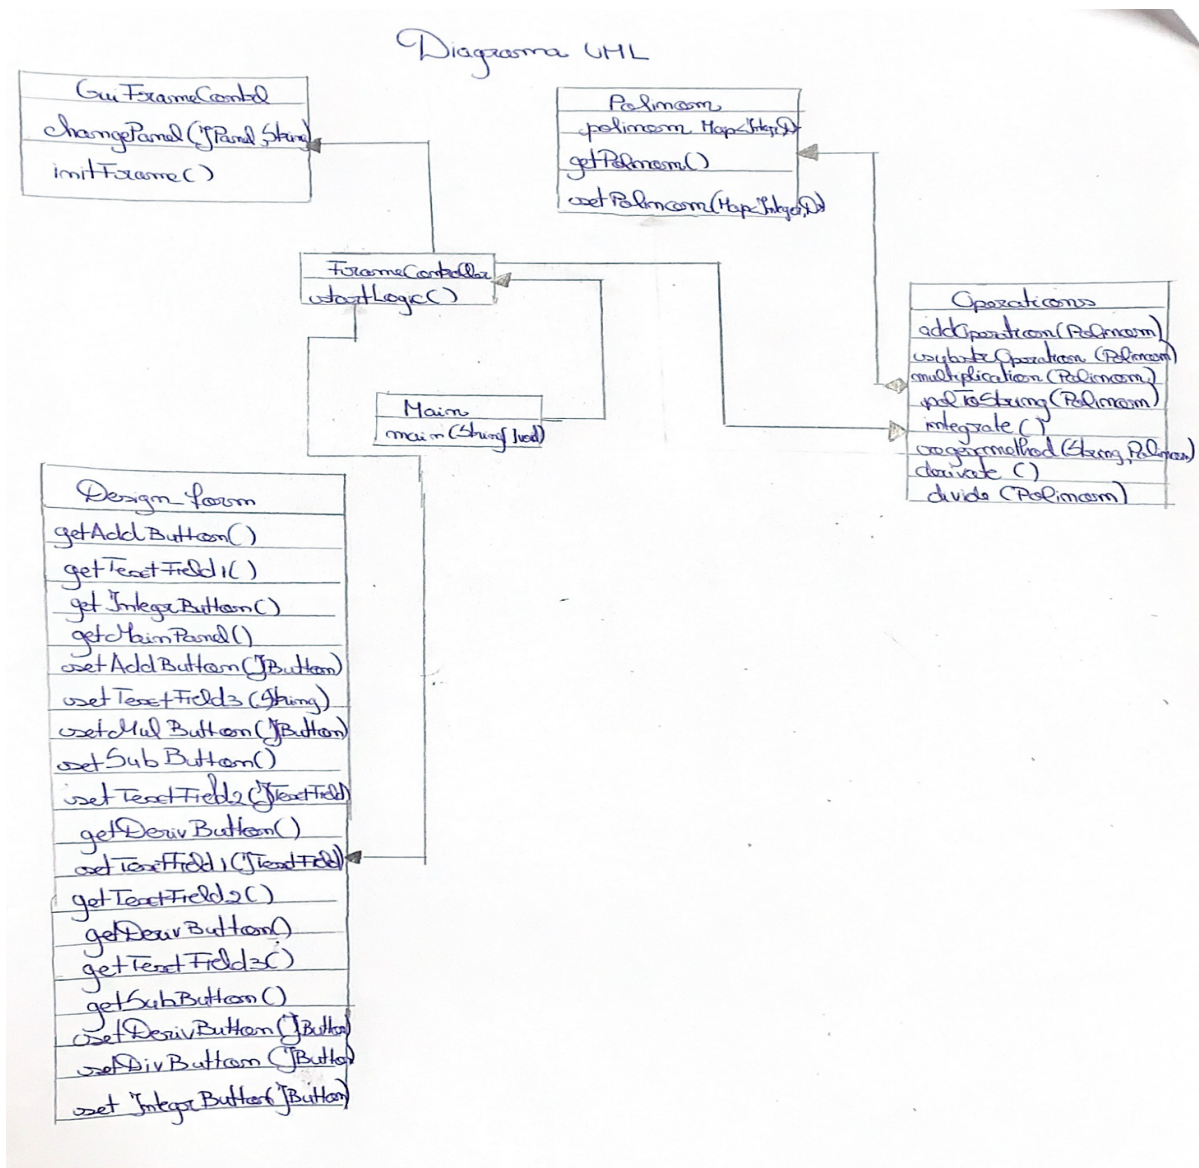 Diagrama UML
GuiFrameContol
changePanel(JPanel,String)
initFrame()
Polinom
polinom Map<Integ,D>
getPolinom()
setPolinom(Map<Integer,D>)
FrameController
startLogic()
Operations
addOperation(Polinom)
Operation (Polinom)
multiplication(Polinom)
polToString(Polinom)
integrate()
regexmethod(String,Polinom)
derivate ()
divide (Polinom)
Main
main(String[]
Design_form
getAddButton()
getTextField1()
getIntegrButton()
getMainPanel()
setAddButton(JButton)
setTextField3(String)
setMulButton(JButton)
setSubButton()
setTextField2(JTextField)
getDerivButton()
setTextField1(JTextField)
getTextField2()
getDerivButton()
getTextField3()
getSubButton()
setDerivButton(JButton)
setDivButton(JButton)
setIntegrButton(JButton)